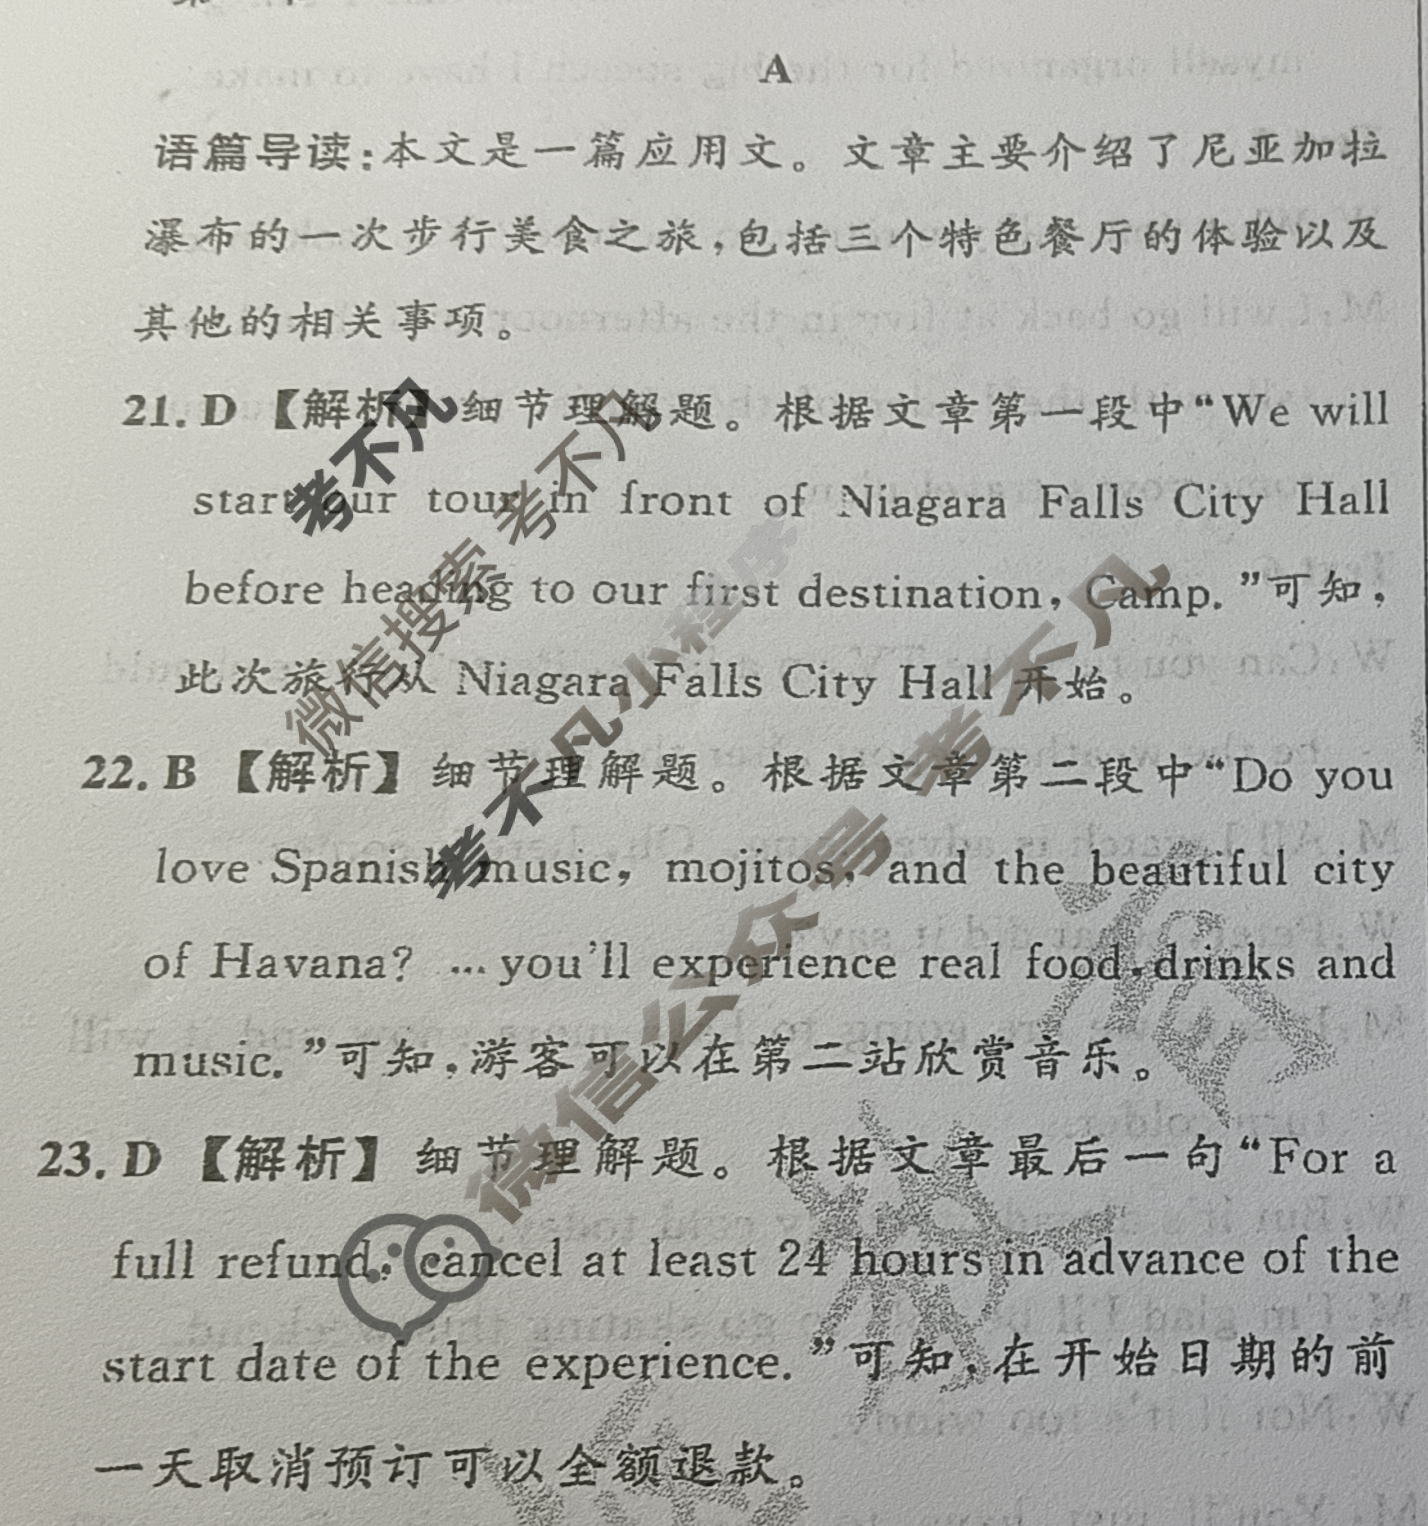 A
语篇导读:本文是一篇应用文。文章主要介绍了尼亚加拉
瀑布的一次步行美食之旅,包括三个特色餐厅的体验以及
其他的相关事项。
21. D 【解析】细节理解题。根据文章第一段中“We will
start our tour in front of Niagara Falls City Hall
before heading to our first destination, Camp.”可知,
此次旅行从 Niagara Falls City Hall 开始。
22. B 【解析】细节理解题。根据文章第二段中“Do you
love Spanish music, mojitos, and the beautiful city
of Havana? … you'll experience real food, drinks and
music.”可知,游客可以在第二站欣赏音乐。
23. D 【解析】细节理解题。根据文章最后一句“For a
full refund, cancel at least 24 hours in advance of the
start date of the experience.”可知,在开始日期的前
一天取消预订可以全额退款。
考不凡
微信搜索 考不凡
考不凡小程序
微信公众号 考不凡